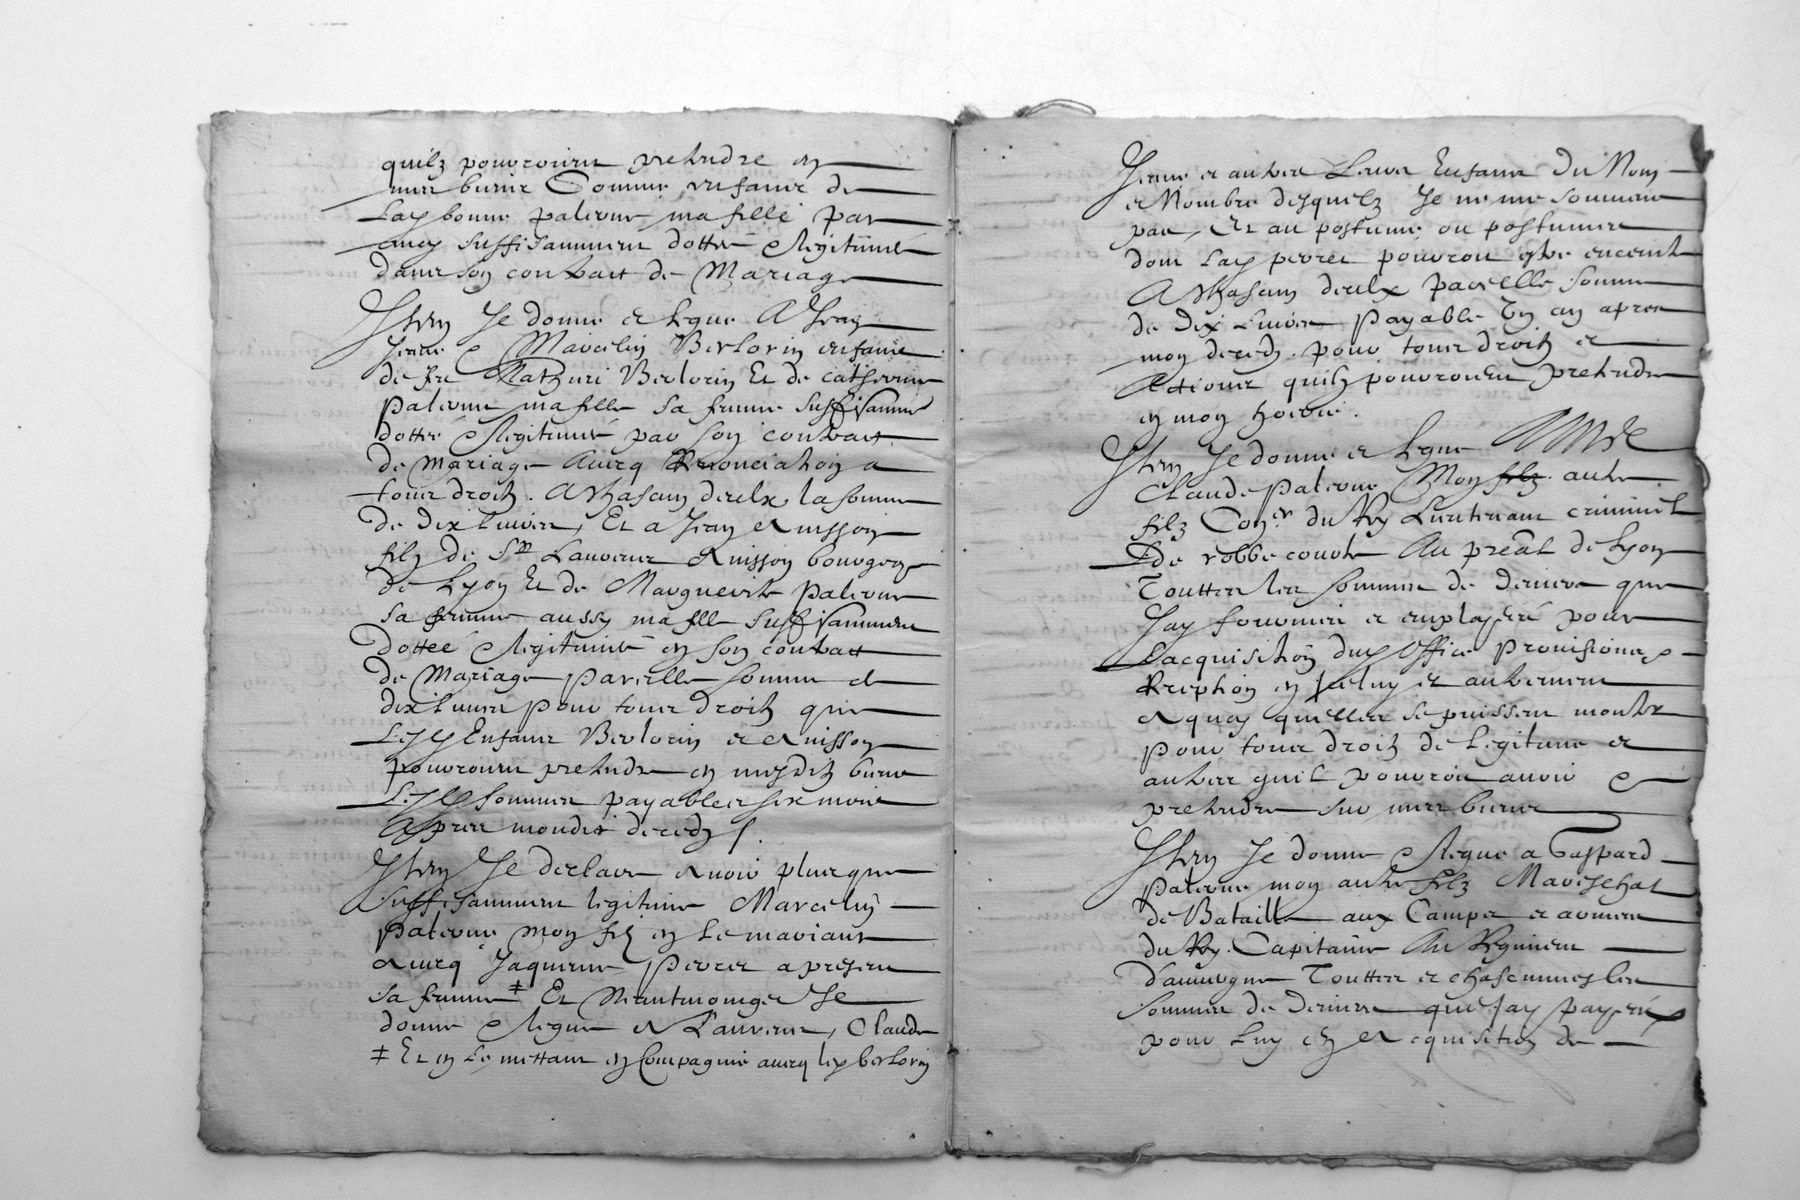 quilz pouvroient pretendre en
mes biens Comme enfans de
Lad bonne palerne ma fille par
moy suffisamment dottée & legitimée
dans son contract de Mariage
Item Je donne et legue A Jean
Jeanne & Marcelin Berlorin enfans
de feu Mathieu Berlorin Et de catherine
palerne ma fille sa femme suffisamment
dottée & legitimée par son contract
de mariage Avecq Renonciation a
tous droitz. A Chascun dicelx la somme
de dix livres, Et a Jean Anisson
filz de Sr Laurens Anisson bourgeois
de Lyon Et de Marguerite palerne
sa femme aussy ma fille suffisamment
dottée & legitimée en son contract
de Mariage pareille somme de
dix livres pour tous droitz que
Lesd Enfans Berlorin et Anisson
pouvroient pretendre en mesditz biens
Lesd sommes payables six mois
Apres mondit decedz /.
Item Je declare avoir plus que
suffisamment legitimé Marcelin
palerne mon filz en Le mariant
avecq Jaqueme perrer a present
sa femme ‡ Et Neantmoings Je
donne & legue A Laurens, Claude
‡ Et en Le mettant en Compagnie avecq led berlorin
Jeanne et autres Leurs Enfans Du Nom
et Nombre desquelz Je ne me souviens
pas, Et au postume ou postumes
dont Lad perrer pouvroit estre enceinte
A Chascun dicelx pareille somme
de dix Livres payable Un an apres
mon decedz. pour tous droitz et
Actions quilz pouvroient pretendre
en mon hoirie.
Item Je donne et legue A Mre
Claude palerne Mon filz autre
filz Coner du Roy Lieutenant criminel
de robbe courte Au preal de Lyon
Touttes les sommes de deniers que
Jay fournies et employées pour
Lacquisition dud Office provisions &
Reception en Iceluy et autrement
A quoy quelles se puissent monter
pour tous droitz de legitime et
autres quil pouvroit avoir &
pretendre sur mes biens
Item Je donne & legue a Gaspard
palerne mon autre filz Mareschal
de Bataille aux Camps et armées
du Roy. Capitaine Au Regiment
Dauvergne Touttes et chascunnes les
sommes de deniers que Jay payées
pour Luy en Acquisition de